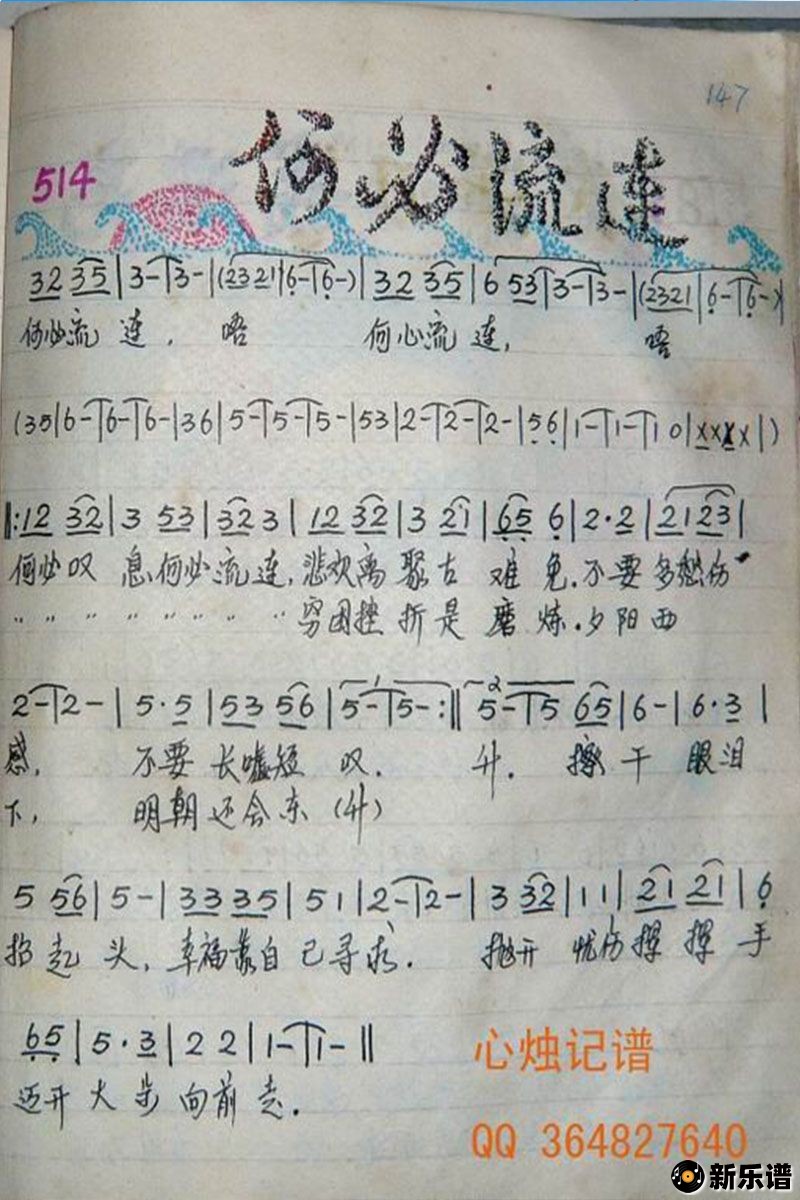 147
514
何必流连
32 35|3-|3-|(2321|6-|6-)|32 35|6 53|3-|3-|(2321|6-|6-)|
何必流 连, 唔 何心流 连, 唔
(35|6-|6-|6-|36|5-|5-|5-|53|2-|2-|2-|56|1-|1-|1 0|xx x x|)
‖:12 32|3 53|32 3|12 32|3 21|65 6|2·2|2123|
何必叹 息何必流连,悲欢离 聚古 难 免.不要多愁伤
〃 〃 〃 〃 〃 〃 〃 〃 穷困挫 折是 磨 炼.夕阳西
2-|2-|5·5|53 56|1 5-|5-:‖2 5-|5 65|6-|6·3|
感, 不要 长嘘短 叹. 升. 擦 干 眼泪
下, 明朝 还会东 (升)
5 56|5-|33 35|5 1|2-|2-|3 32|1 1|21 21|6
抬 起 头, 幸福靠自 己寻求. 抛开 忧伤挥 挥 手
65|5·3|2 2|1-|1-‖
迈开 大 步 向前 走.
心烛记谱
QQ 364827640
新乐谱